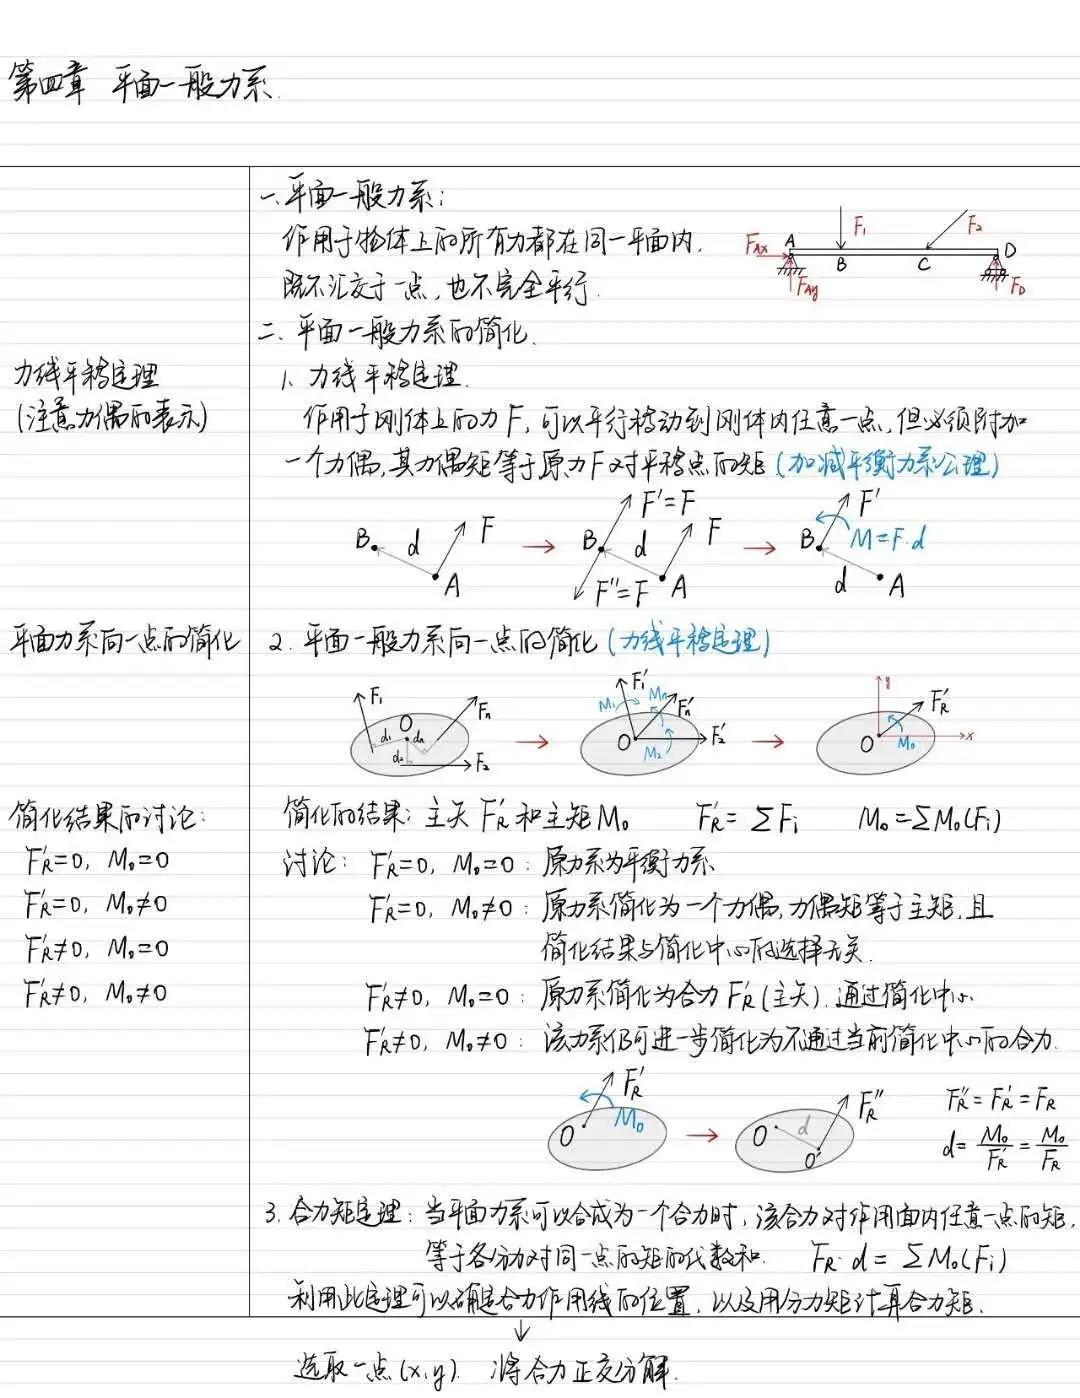 第四章 平面一般力系.
一、平面一般力系:
作用于物体上的所有力都在同一平面内,
既不汇交于一点,也不完全平行.
FAx A F₁ F₂ D
B C
FAy FD
二、平面一般力系的简化.
力线平移定理
(注意力偶的表示)
1、力线平移定理.
作用于刚体上的力F,可以平行移动到刚体内任意一点,但必须附加
一个力偶,其力偶矩等于原力F对平移点的矩(加减平衡力系公理)
B d F A → B F'=F d F F''=F A → B F' M=F·d d A
平面力系向一点的简化
2. 平面一般力系向一点的简化(力线平移定理)
F₁ O Fn d₁ dn d₂ F₂ → F₁' M₁ Mn Fn' O M₂ F₂' → y FR' O M₀ x
简化结果的讨论:
FR'=0, M₀=0
FR'=0, M₀≠0
FR'≠0, M₀=0
FR'≠0, M₀≠0
简化的结果:主矢FR'和主矩M₀ FR'=ΣFi M₀=ΣM₀(Fi)
讨论: FR'=0, M₀=0: 原力系为平衡力系
FR'=0, M₀≠0: 原力系简化为一个力偶,力偶矩等于主矩,且
简化结果与简化中心的选择无关.
FR'≠0, M₀=0: 原力系简化为合力FR'(主矢),通过简化中心
FR'≠0, M₀≠0: 该力系仍可进一步简化为不通过当前简化中心的合力.
O FR' M₀ → O d O' FR''
FR''=FR'=FR
d=M₀/FR'=M₀/FR
3. 合力矩定理:当平面力系可以合成为一个合力时,该合力对作用面内任意一点的矩,
等于各分力对同一点的矩的代数和. FR·d=ΣM₀(Fi)
利用此定理可以确定合力作用线的位置,以及用分力矩计算合力矩.
↓
选取一点(x,y) 将合力正交分解.